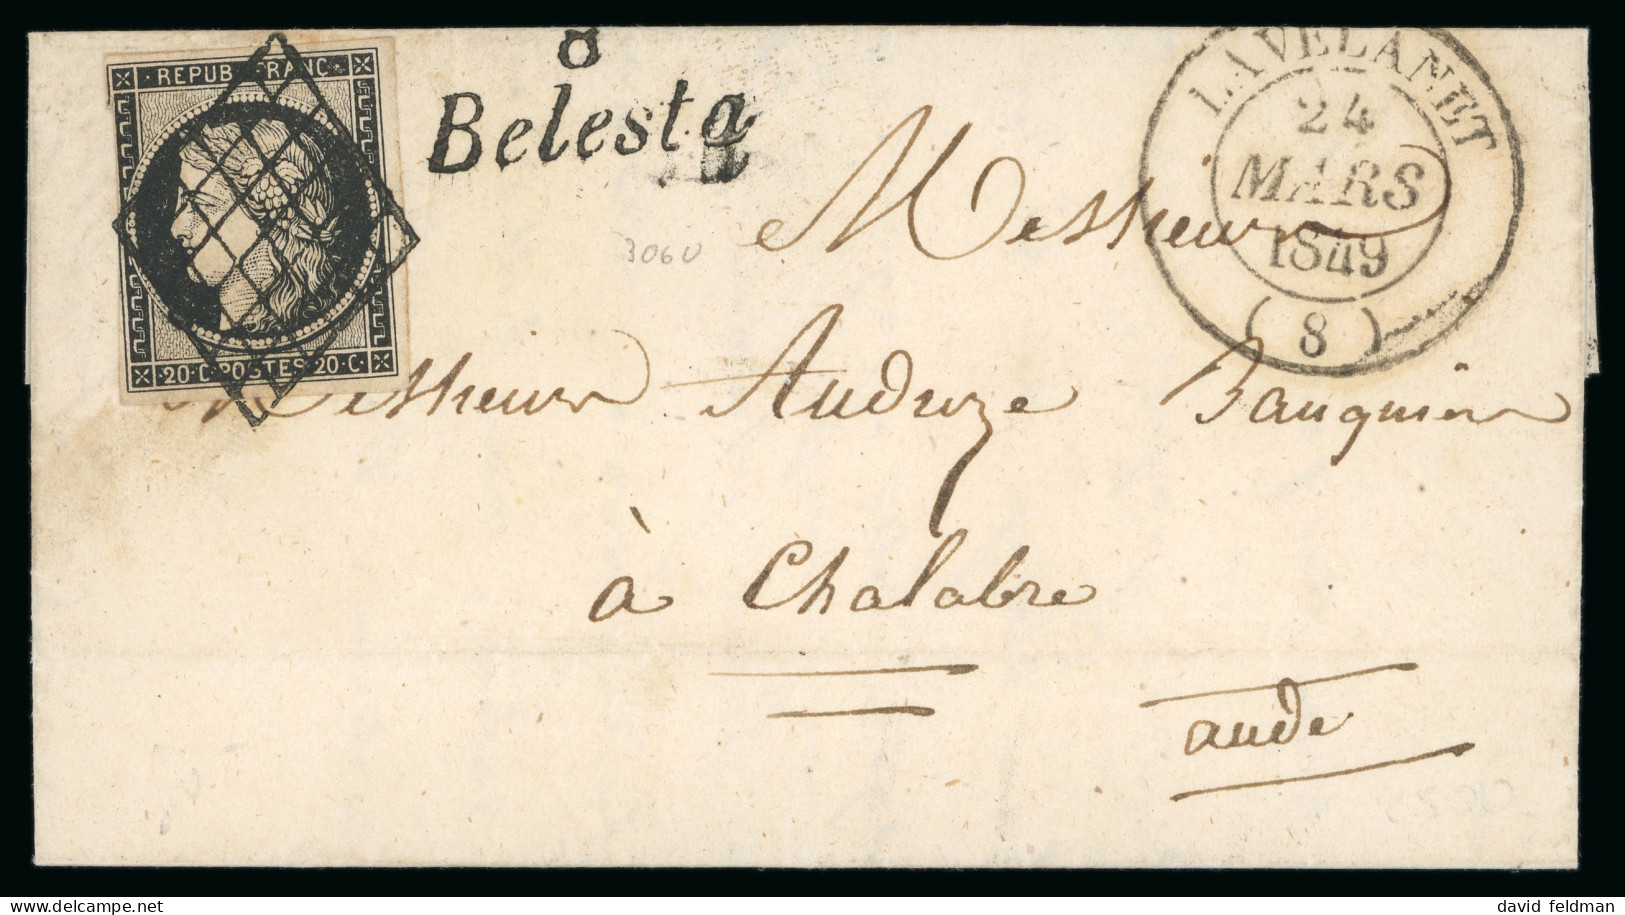 REPUB FRANC
20·C·POSTES·20·C·
8
Belesta
LAVELANET
24
MARS
1849
(8)
3060
Messieurs
Messieurs Auduze Banquier
à Chalabre
aude
david feldman